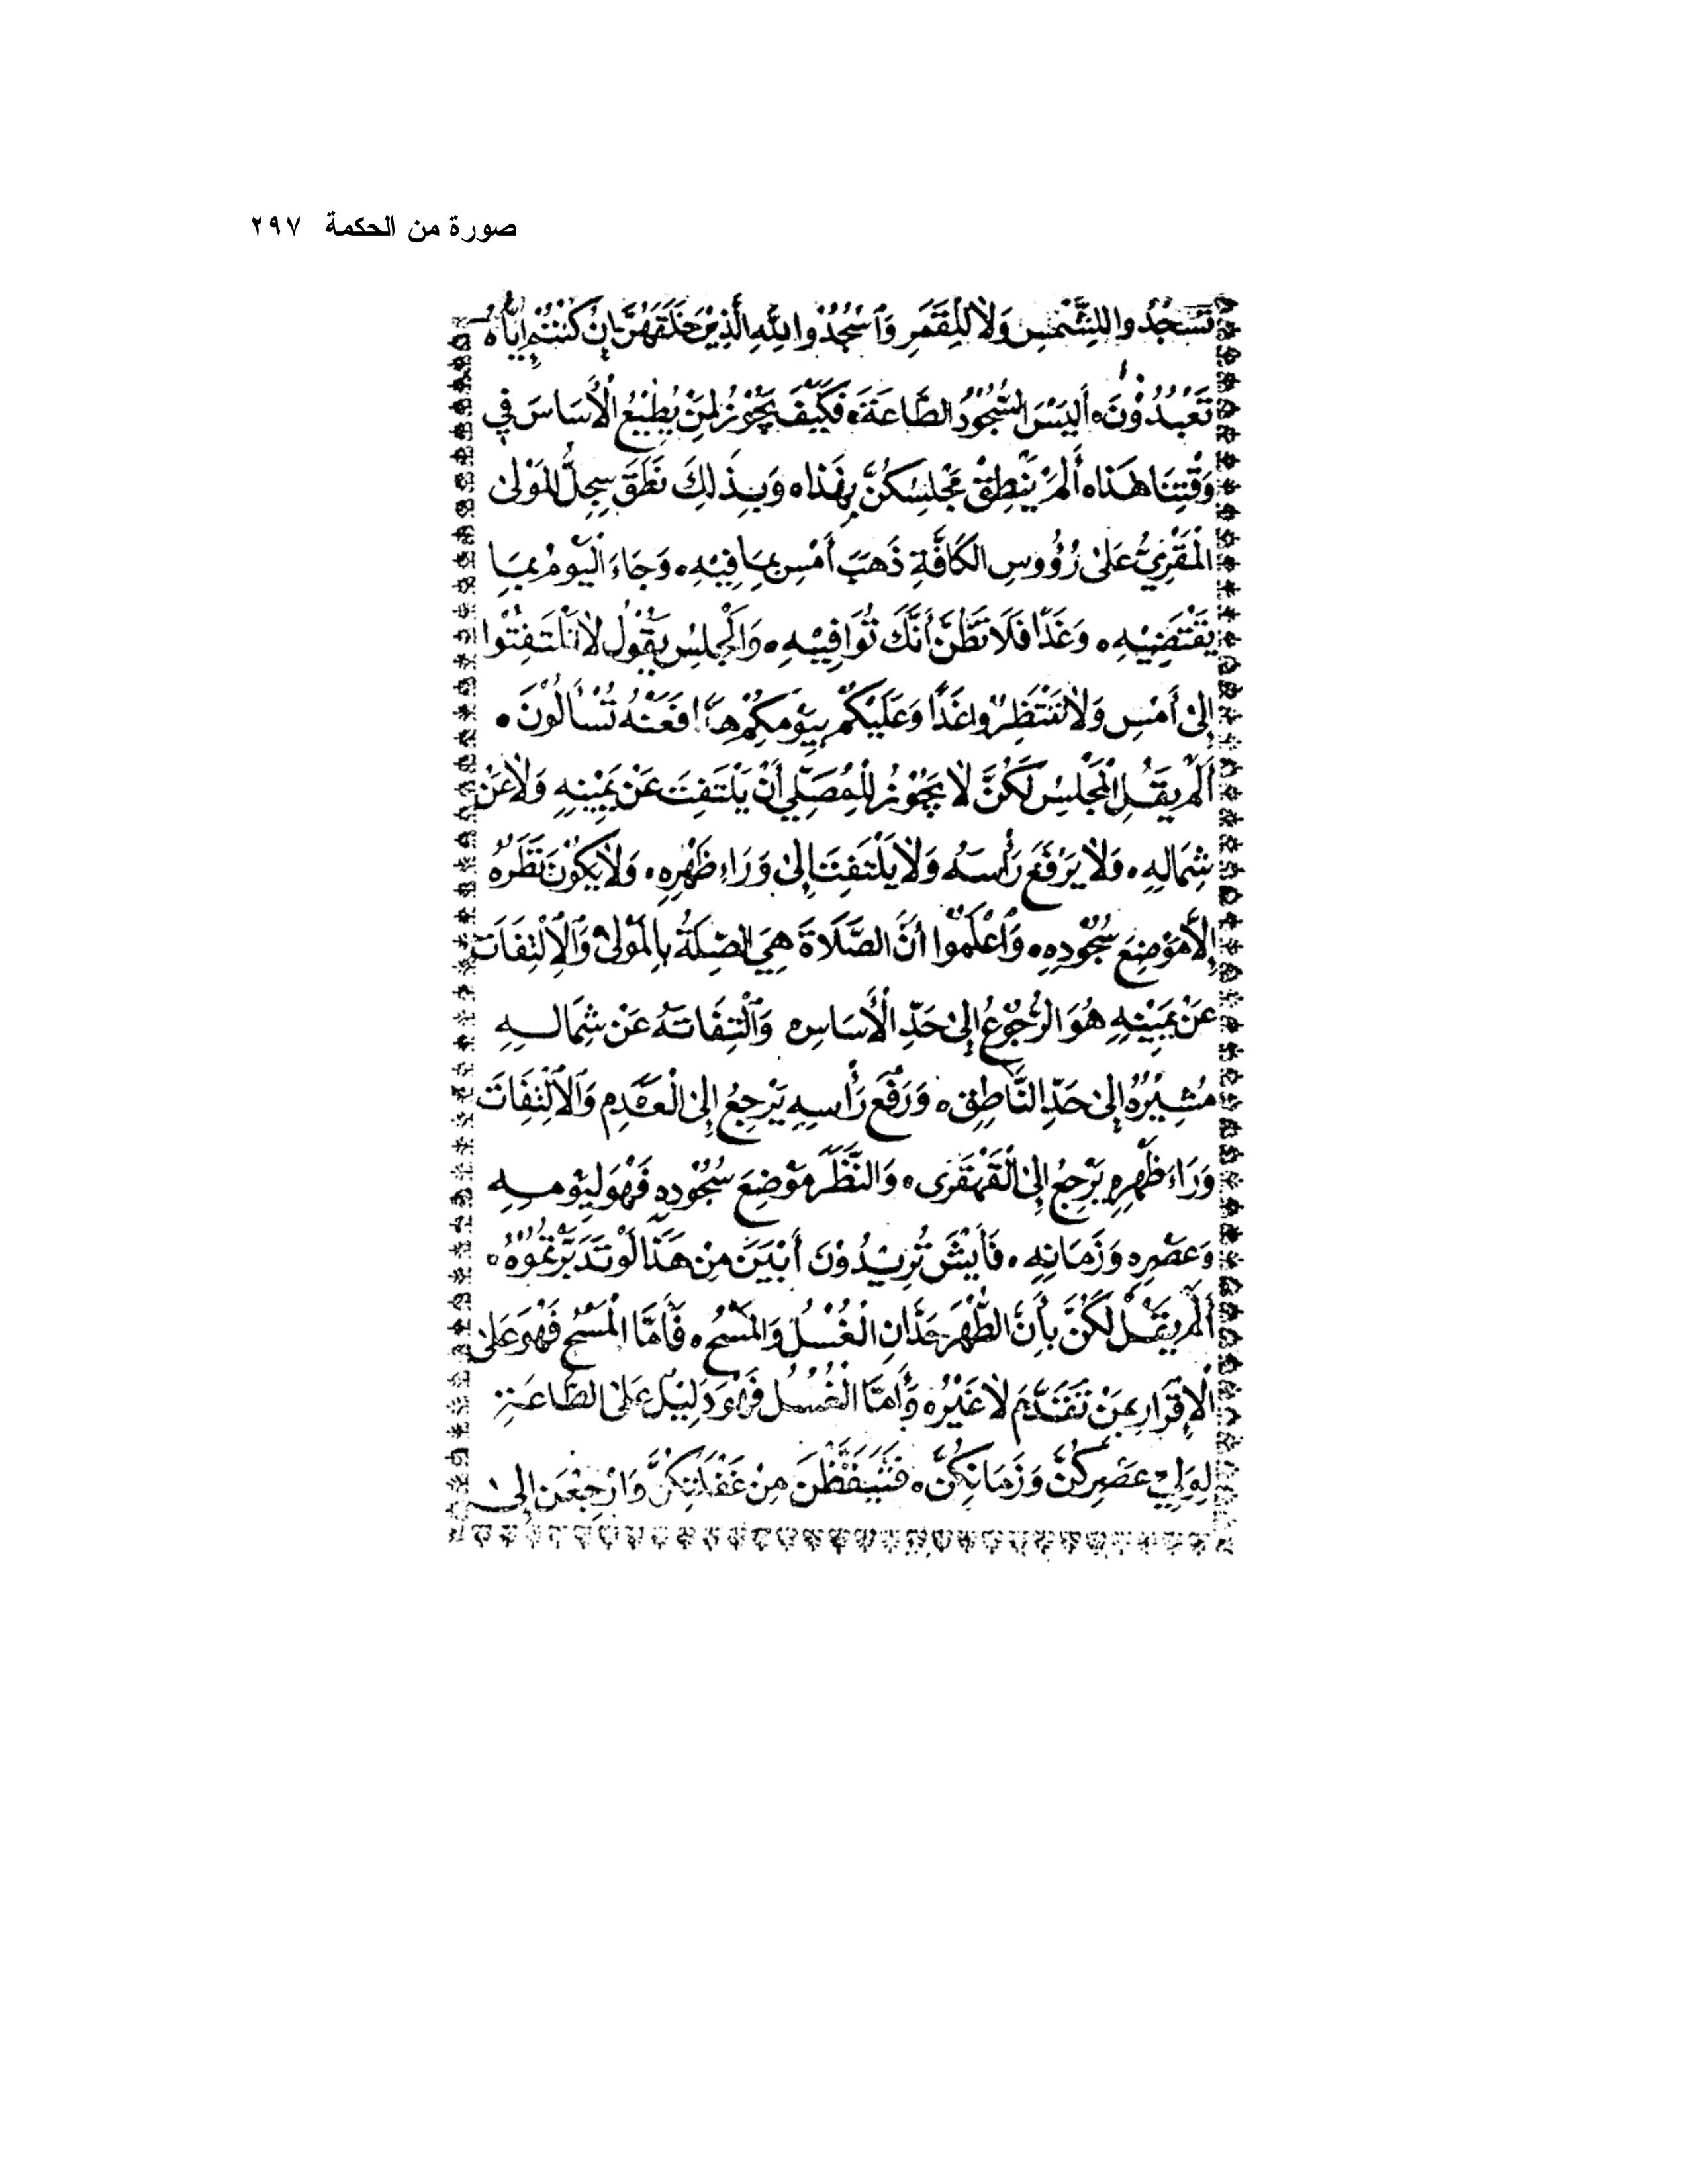 صورة من الحكمة ٢٩٧
تَسْجُدُوا لِلشَّمْسِ وَلَا لِلْقَمَرِ وَٱسْجُدُوا لِلَّهِ الَّذِيْ خَلَقَهُنَّ إِنْ كُنْتُمْ إِيَّاهُ
تَعْبُدُوْنَ، أَلَيْسَ السُّجُوْدُ الطَّاعَةَ، فَكَيْفَ يَجُوْزُ لِمَنْ يُطِيْعُ الْأَسَاسَ فِي
وَقْتِنَا هٰذَا، أَلَمْ يَنْطِقْ مَجْلِسُكُنَّ بِهٰذَا، وَبِذٰلِكَ نَطَقَ سِجِلُّ الْمَوْلَىٰ
الْمَقْرِيُّ عَلَىٰ رُؤُوسِ الْكَافَّةِ ذَهَبَ أَمْسِ بِمَا فِيْهِ، وَجَاءَ الْيَوْمُ بِمَا
يَقْتَضِيْهِ، وَغَدًا فَلَا تَظُنَّ أَنَّكَ تُوَافِيْهِ، وَالْمَجْلِسُ يَقُوْلُ لَا تَلْتَفِتُوْا
إِلَىٰ أَمْسِ وَلَا تَنْتَظِرُوا غَدًا وَعَلَيْكُمْ بِيَوْمِكُمْ هٰذَا فَعَنْهُ تُسْأَلُوْنَ،
أَلَمْ يَقُلِ الْمَجْلِسُ لَكُنَّ لَا يَجُوْزُ لِلْمُصَلِّي أَنْ يَلْتَفِتَ عَنْ يَمِيْنِهِ وَلَا عَنْ
شِمَالِهِ، وَلَا يَرْفَعَ رَأْسَهُ وَلَا يَلْتَفِتَ إِلَىٰ وَرَاءِ ظَهْرِهِ، وَلَا يَكُوْنَ نَظَرُهُ
إِلَّا مَوْضِعَ سُجُوْدِهِ، وَٱعْلَمُوا أَنَّ الصَّلَاةَ هِيَ الصِّلَةُ بِالْمَوْلَىٰ وَٱلْاِلْتِفَاتَ
عَنْ يَمِيْنِهِ هُوَ الرُّجُوْعُ إِلَىٰ حَدِّ الْأَسَاسِ، وَٱلْتِفَاتَهُ عَنْ شِمَالِهِ
مُشِيْرُهُ إِلَىٰ حَدِّ النَّاطِقِ، وَرَفْعَ رَأْسِهِ يَرْجِعُ إِلَى الْعَدَمِ وَٱلْاِلْتِفَاتَ
وَرَاءَ ظَهْرِهِ يَرْجِعُ إِلَىٰ الْقَهْقَرَى، وَالنَّظَرَ مَوْضِعَ سُجُوْدِهِ فَهُوَ لِيَوْمِهِ
وَعَصْرِهِ وَزَمَانِهِ، فَأَيْشَ تُرِيْدُوْنَ أَبْيَنَ مِنْ هَذَا لَوْ تَدَبَّرْتُمُوْهُ،
أَلَمْ يَقُلْ لَكُنَّ بِأَنَّ الطُّهْرَ حَدَّانِ الْغُسْلُ وَالْمَسْحُ، فَأَمَّا الْمَسْحُ فَهُوَ عَلَىٰ
الْإِقْرَارِ بِمَنْ تَقَدَّمَ لَا غَيْرُهُ، وَأَمَّا الْغُسْلُ فَهُوَ دَلِيْلٌ عَلَىٰ الطَّاعَةِ
لِوَلِيِّ عَصْرِكُنَّ وَزَمَانِكُنَّ، فَتَيَقَّظْنَ مِنْ غَفْلَتِكُنَّ وَارْجِعْنَ إِلَىٰ